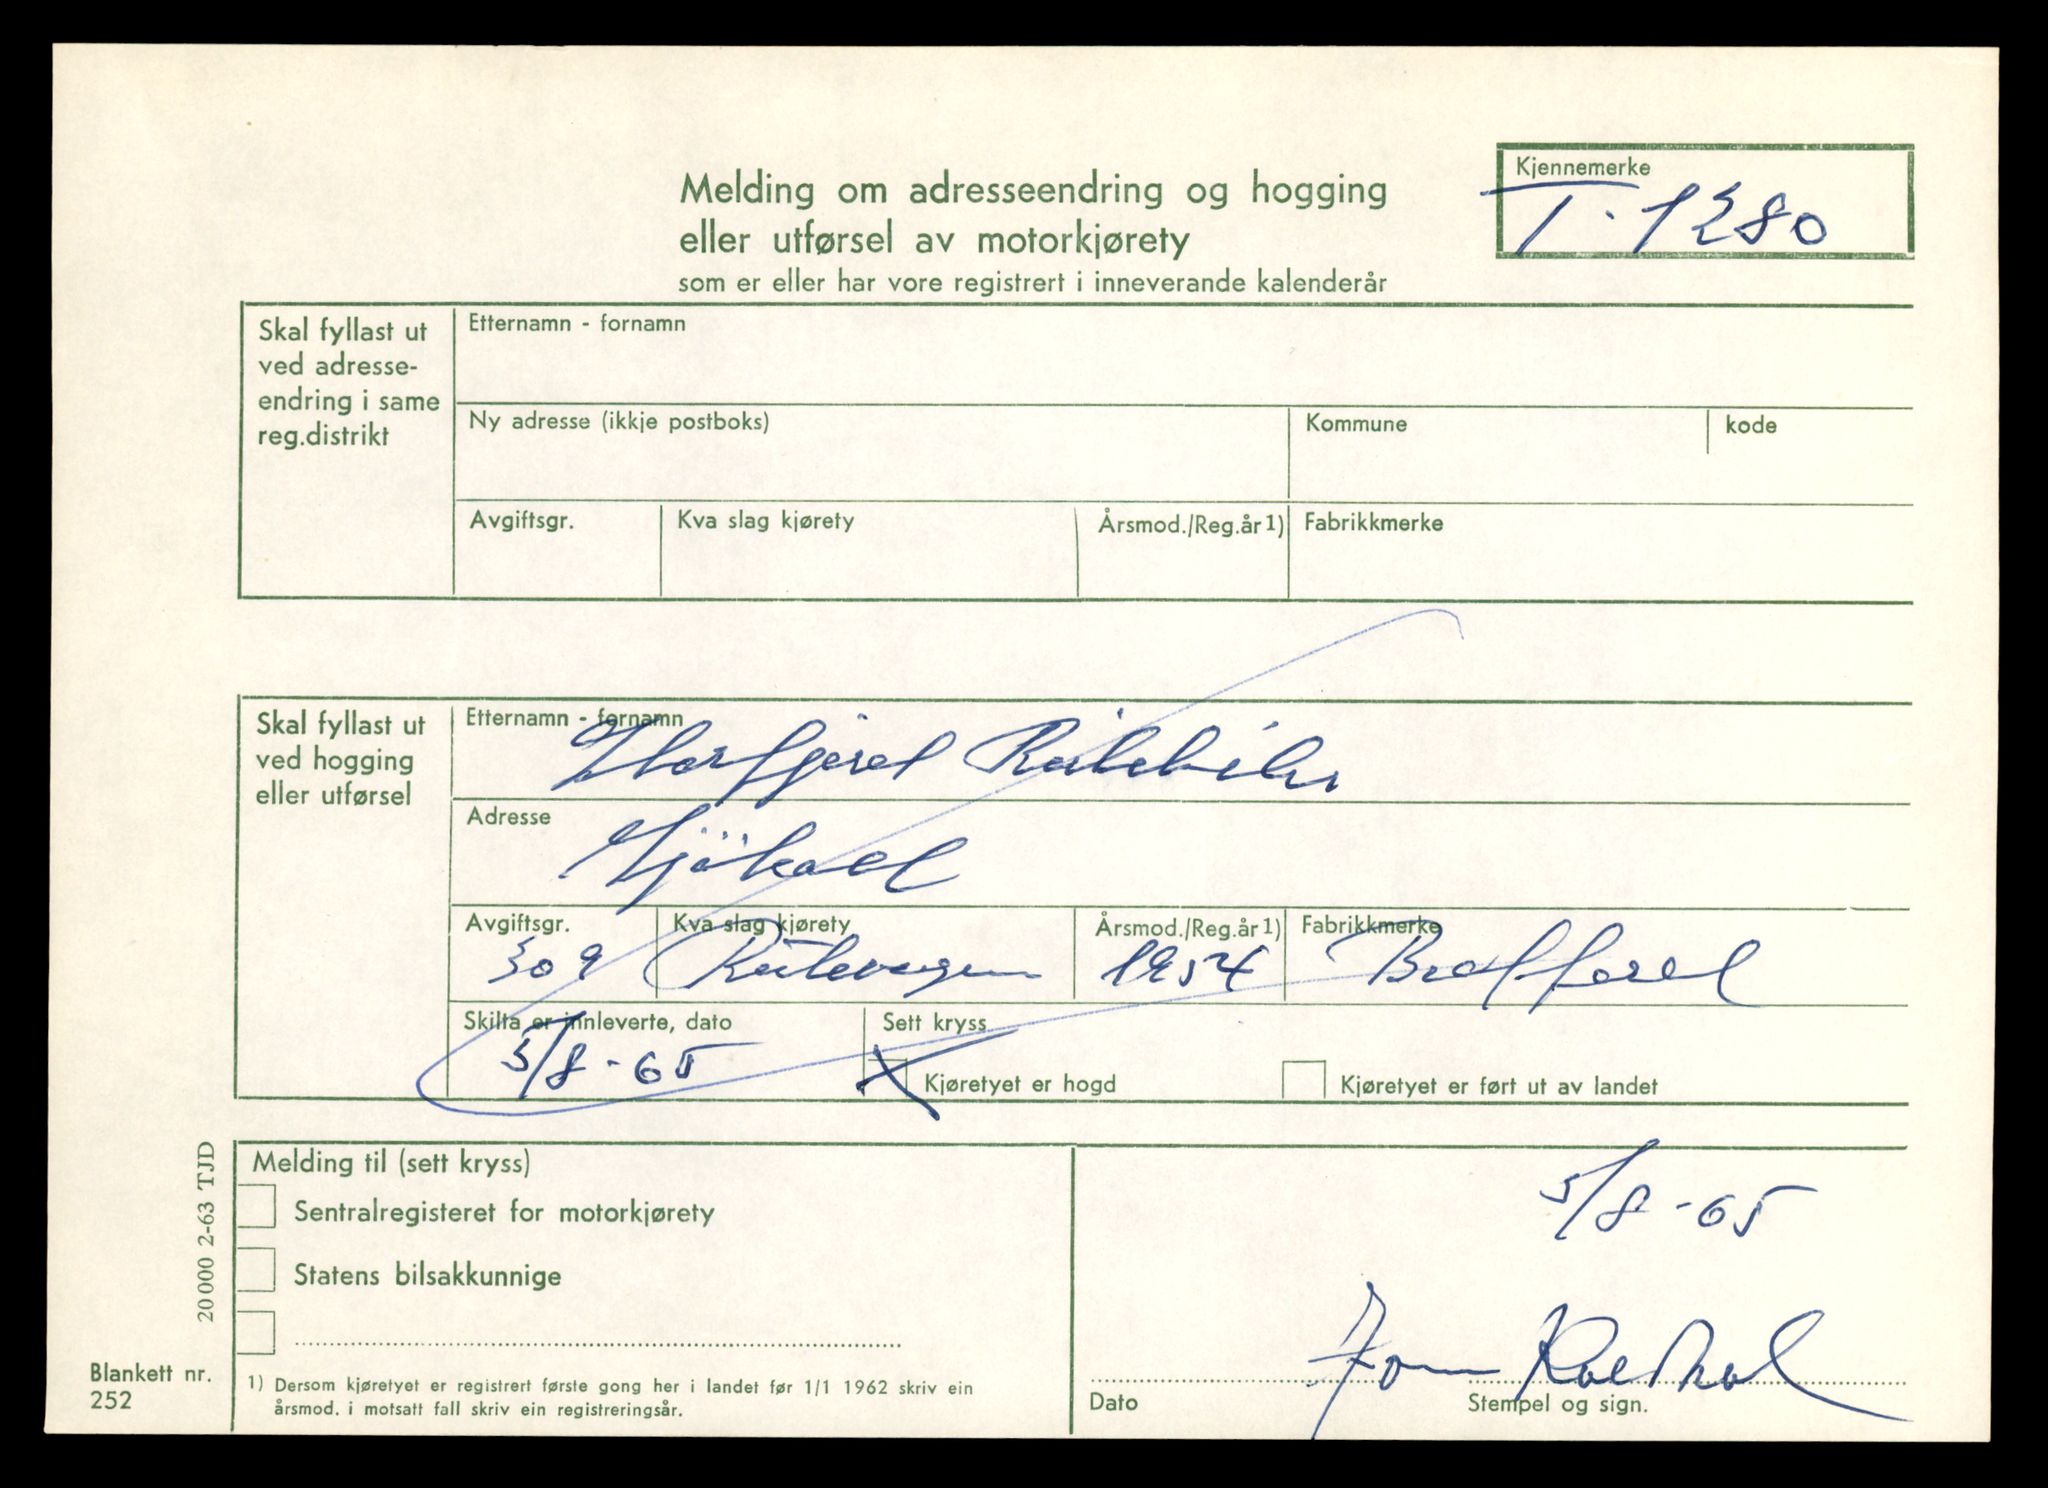 Kjennemerke
T-1280
Melding om adresseendring og hogging
eller utførsel av motorkjørety
som er eller har vore registrert i inneverande kalenderår
Skal fyllast ut
ved adresse-
endring i same
reg.distrikt
Etternamn - fornamn
Ny adresse (ikkje postboks)
Kommune
kode
Avgiftsgr.
Kva slag kjørety
Årsmod./Reg.år 1)
Fabrikkmerke
Skal fyllast ut
ved hogging
eller utførsel
Etternamn - fornamn
Rutebiler
Adresse
Avgiftsgr.
309
Kva slag kjørety
Rutevogn
Årsmod./Reg.år 1)
1954
Fabrikkmerke
Bedford
Skilta er innleverte, dato
5/8-65
Sett kryss
X
Kjøretyet er hogd
Kjøretyet er ført ut av landet
Melding til (sett kryss)
Sentralregisteret for motorkjørety
Statens bilsakkunnige
5/8-65
Dato
Stempel og sign.
1) Dersom kjøretyet er registrert første gong her i landet før 1/1 1962 skriv ein
årsmod. i motsatt fall skriv ein registreringsår.
20000 2-63 TJD
Blankett nr.
252